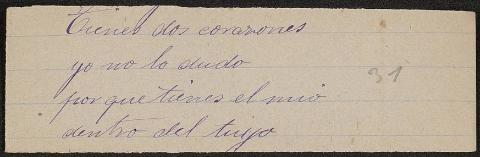 Tienes dos corazones
yo no lo dudo
31
porque tienes el mio
dentro del tuyo